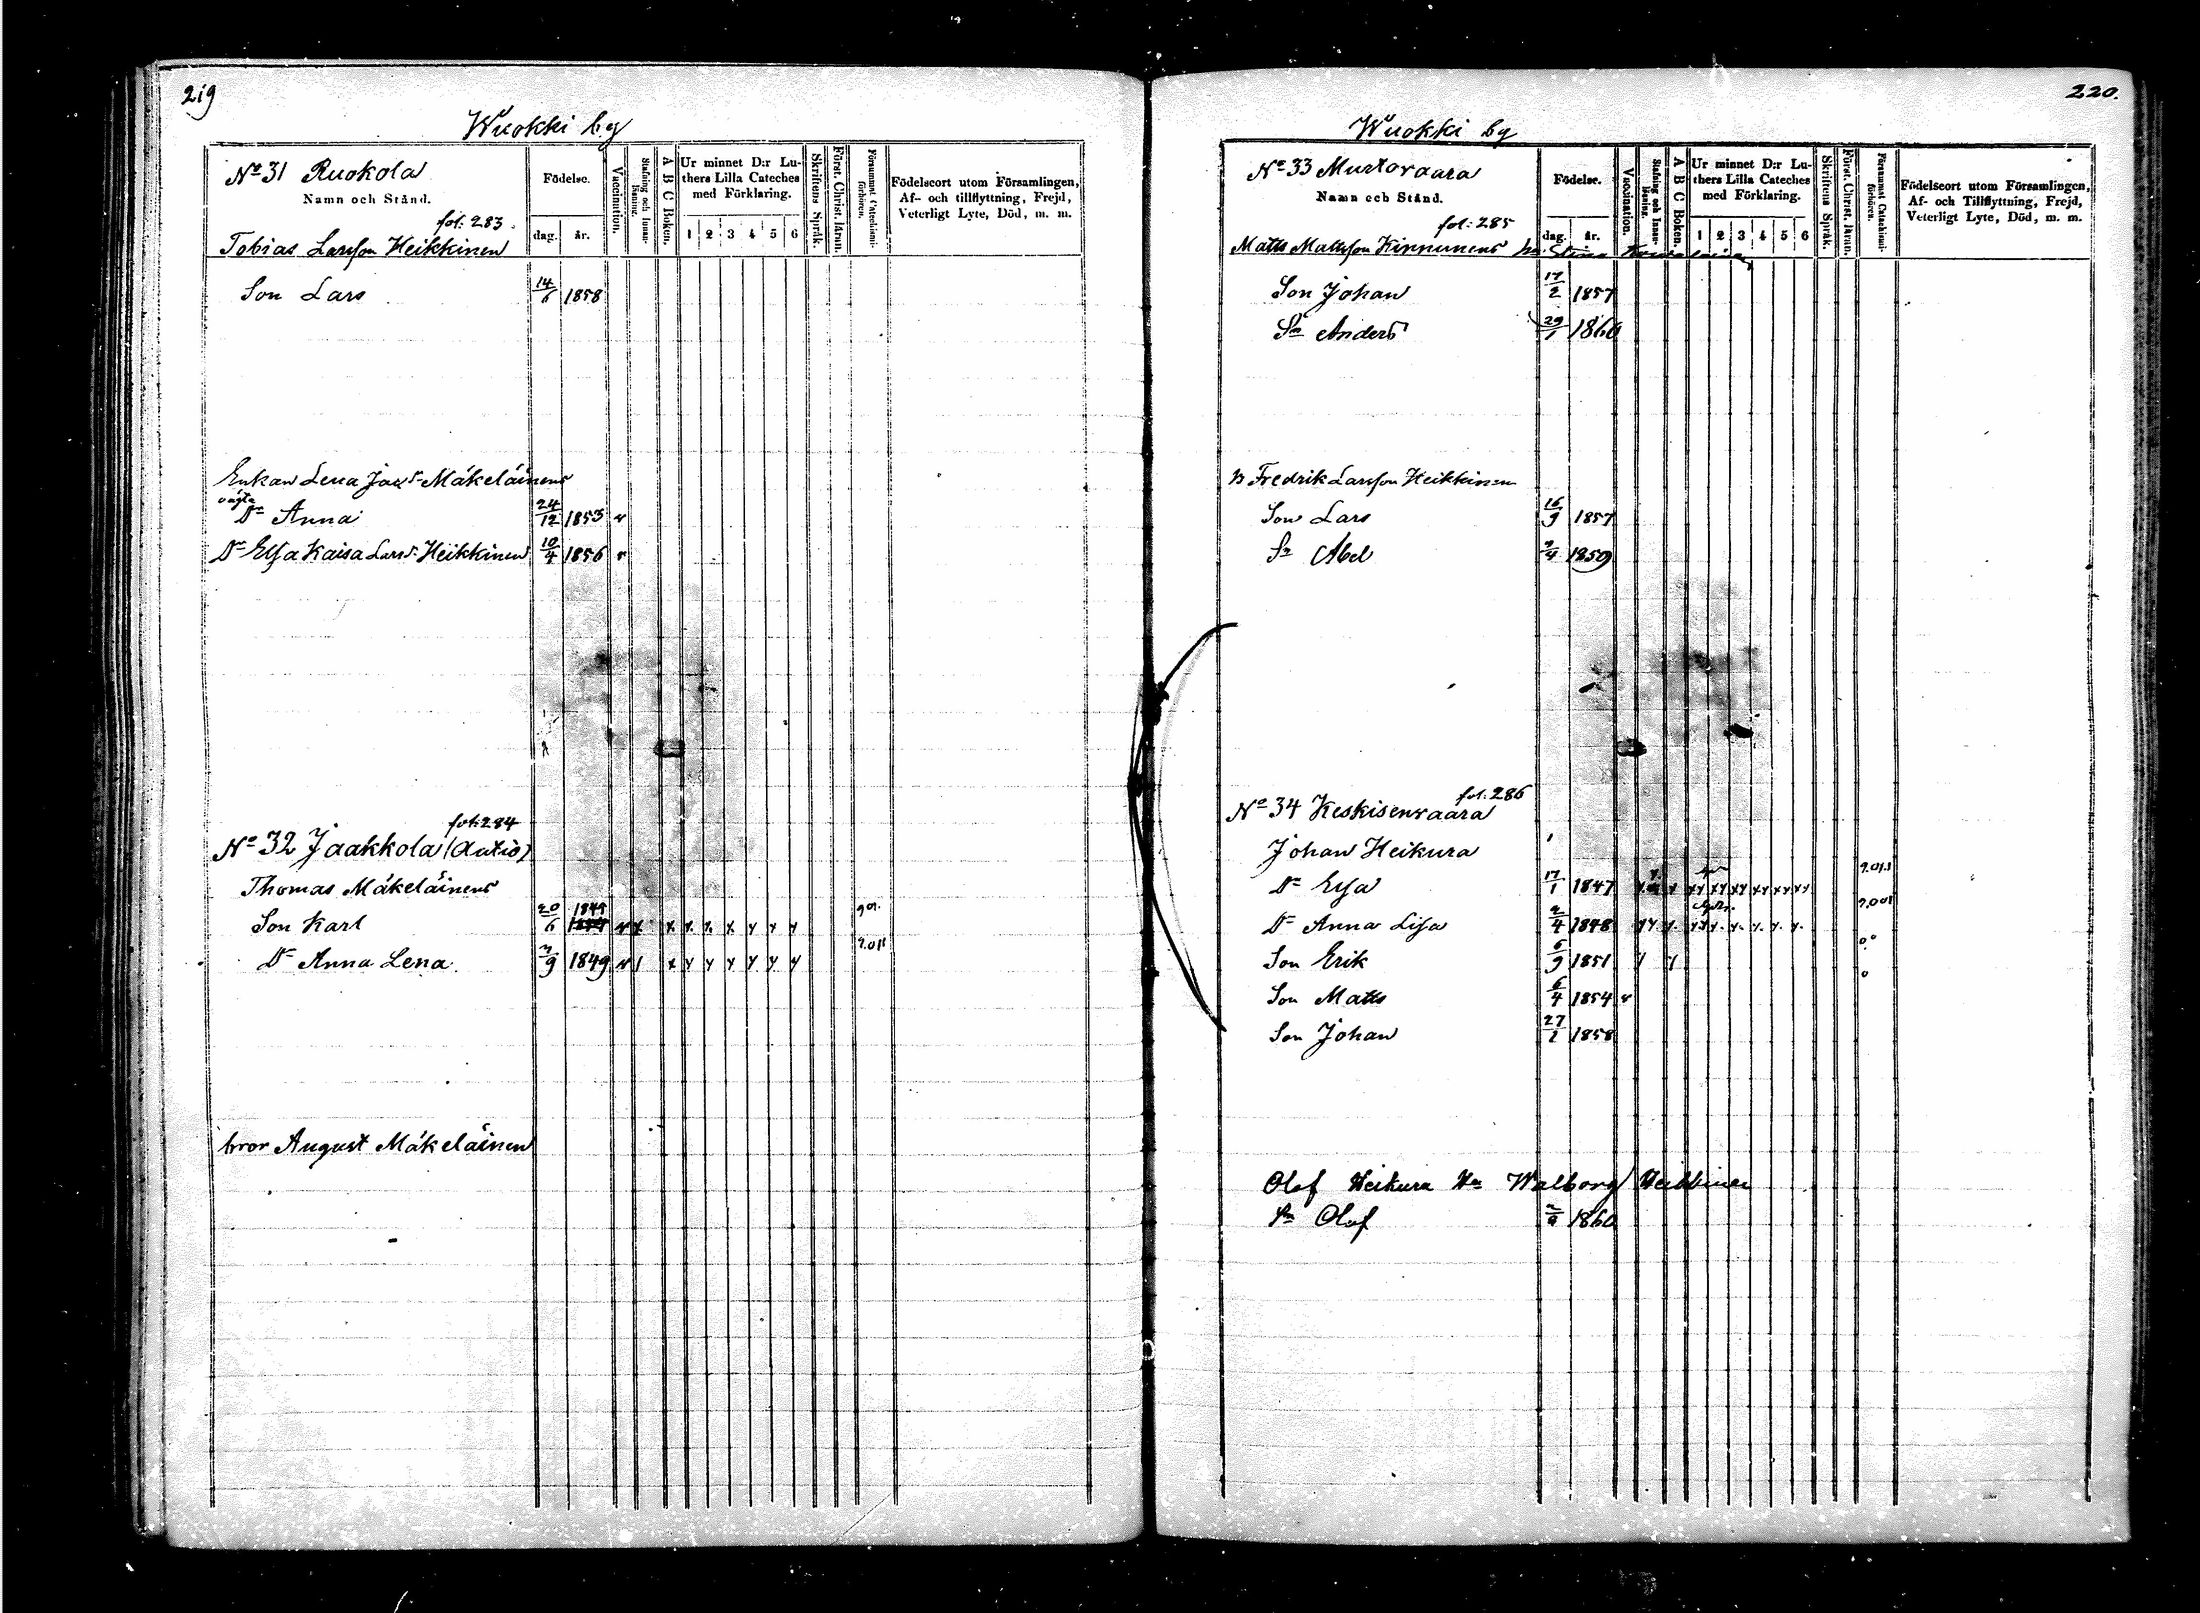 219
Wuokki by
No 31 Ruokola
Namn och Stånd.
Födelse.
dag. år.
Vaccination.
Stafning och Innan-läsning.
A B C Boken.
Ur minnet D:r Lu-
thers Lilla Cateches
med Förklaring.
1 2 3 4 5 6
Skriftens Språk.
Först. Christ. läran.
Försummat Catechismi-förhören.
Födelseort utom Församlingen,
Af- och tillflyttning, Frejd,
Veterligt Lyte, Död, m. m.
fol: 283
Tobias Larsson Heikkinen
Son Lars 14/6 1858
Enkan Lena Jacs Mäkeläinens
oägta
Dr Anna 24/12 1853 v
Dr Elsa Kaisa Larsd. Heikkinen 10/4 1856 v
fol: 284
No 32 Jaakkola (Autio)
Thomas Mäkeläinens
Son Karl 20/6 1849
Dr Anna Lena 7/9 1849
bror August Mäkeläinen
220.
Wuokki by
No 33 Murtovaara
Namn och Stånd.
Födelse.
dag. år.
Vaccination.
Stafning och Innan-läsning.
A B C Boken.
Ur minnet D:r Lu-
thers Lilla Cateches
med Förklaring.
1 2 3 4 5 6
Skriftens Språk.
Först. Christ. läran.
Försummat Catechismi-förhören.
Födelseort utom Församlingen,
Af- och Tillflyttning, Frejd,
Veterligt Lyte, Död, m. m.
fol: 285
Matts Mattsson Kinnunens hu Stina
Son Johan 17/2 1857
Sn Anders 29/1 1860
Fredrik Larsson Heikkinen
Son Lars 16/9 1857
Sn Abel 1859
fol: 286
No 34 Keskisenvaara
Johan Heikura
Dr Elsa 17/1 1847
Dr Anna Lisa 2/4 1848
Son Erik 6/9 1851
Son Matts 6/4 1854 v
Son Johan 27/2 1858
Olof Heikura Hu Walborg Heikkinen
Sn Olof 1860